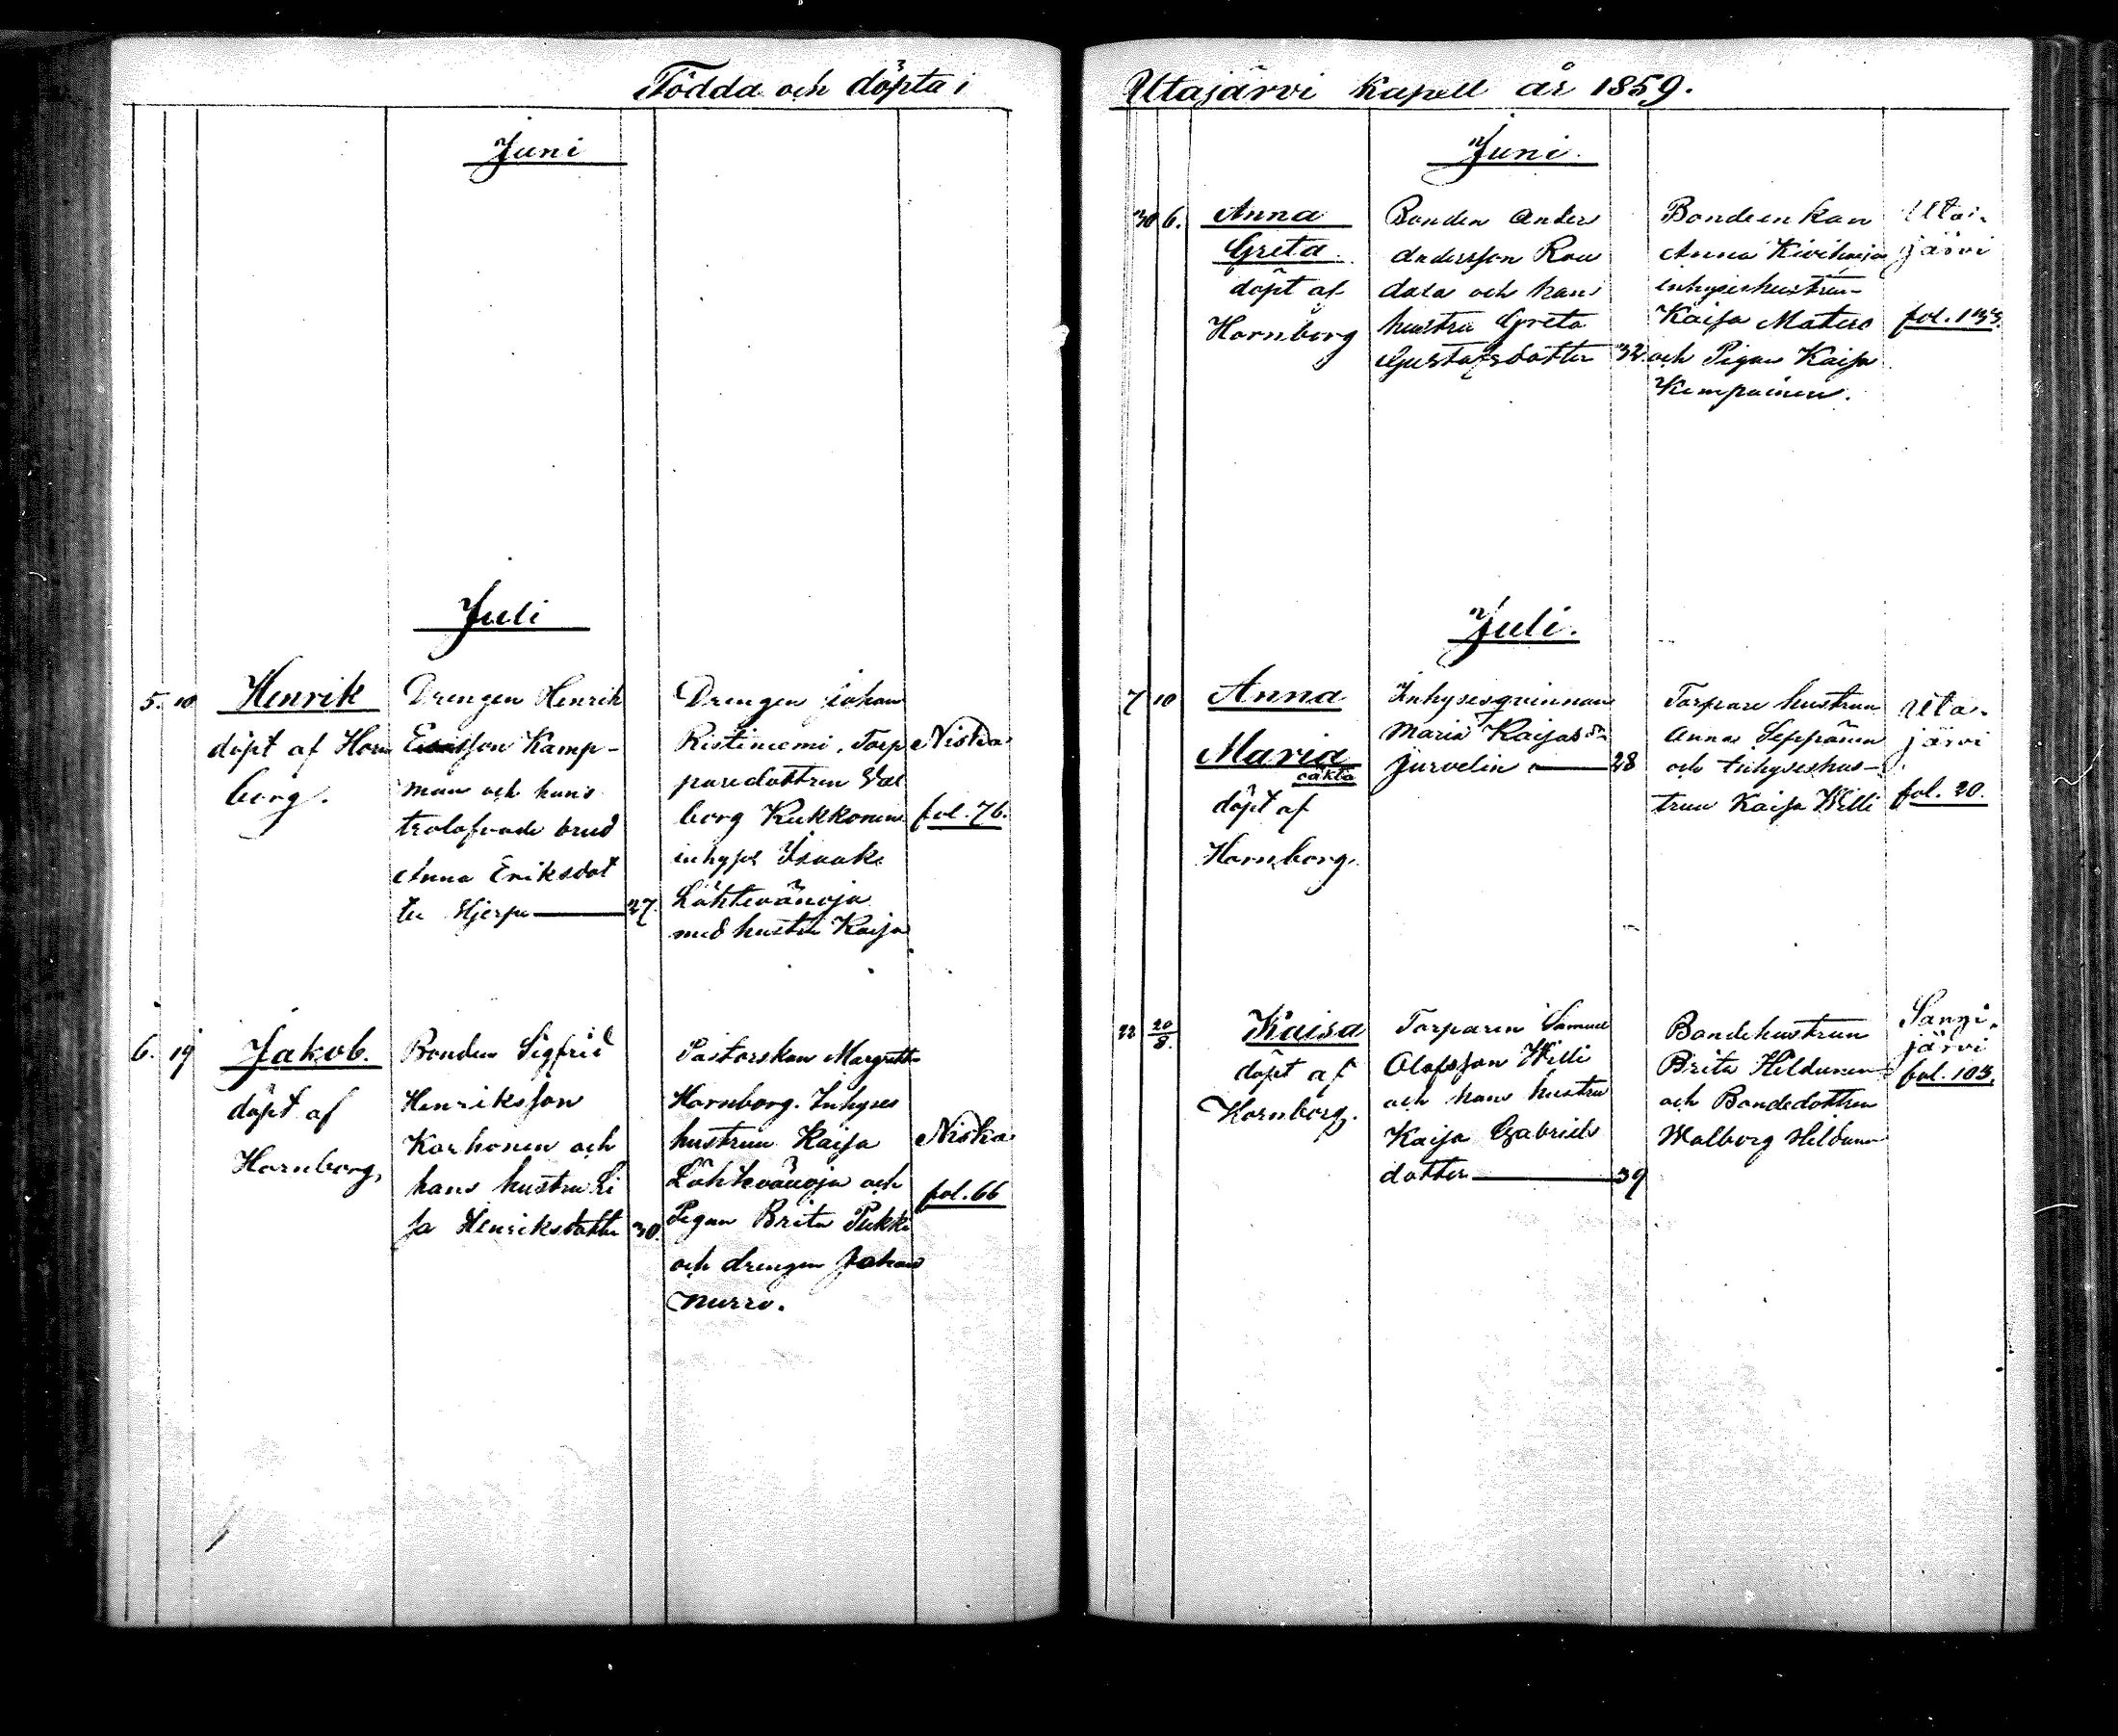 Födda och döpta i
Juni
Juli
5. 10
Henrik
döpt af Horn
borg.
Drengen Henrik
Esasson Kamp-
man och hans
trolofvade brud
Anna Eriksdot
ter Hjerpe 27.
Drengen Johan
Ristiniemi, Torp
paredottren Val
borg Kukkonen
inhyses Isaak
Lähtevänoja
med hustru Kaisa
Niska
fol. 76.
6. 19
Jakob.
döpt af
Hornborg,
Bonden Sigfrid
Henriksson
Korhonen och
hans hustru Li
sa Henriksdotter 30.
Pastorskan Margreta
Hornborg. Inhyses
hustrun Kaisa
Lähtevänoja och
Pigan Brita Pukki
och drengen Johan
Murro.
Niska
fol. 66
Utajärvi Kapell år 1859.
Juni.
30 6.
Anna
Greta.
döpt af
Hornborg
Bonden Anders
Andersson Rou
dala och hans
hustru Greta
Gustafsdotter 32.
Bondeenkan
Anna Kiviharju
inhyseshustrun
Kaisa Matero
och Pigan Kaisa
Kempainen.
Uta-
järvi
fol. 133.
Juli.
7 10
Anna
Maria
oäkta
döpt af
Hornborg.
Inhysesqvinnan
Maria Kaijasdr
Jurvelin 28
Torpare hustrun
Anna Seppänen
och Inhyseshus-
trun Kaisa Willi
Uta-
järvi
fol. 20.
22 20/8.
Kaisa
döpt af
Hornborg.
Torparen Samuel
Olofsson Willi
och hans hustru
Kaisa Gabriels
dotter 39
Bondehustrun
Brita Hildunen
och Bondedottren
Walborg Hildunen
Sangi-
järvi
fol. 103.